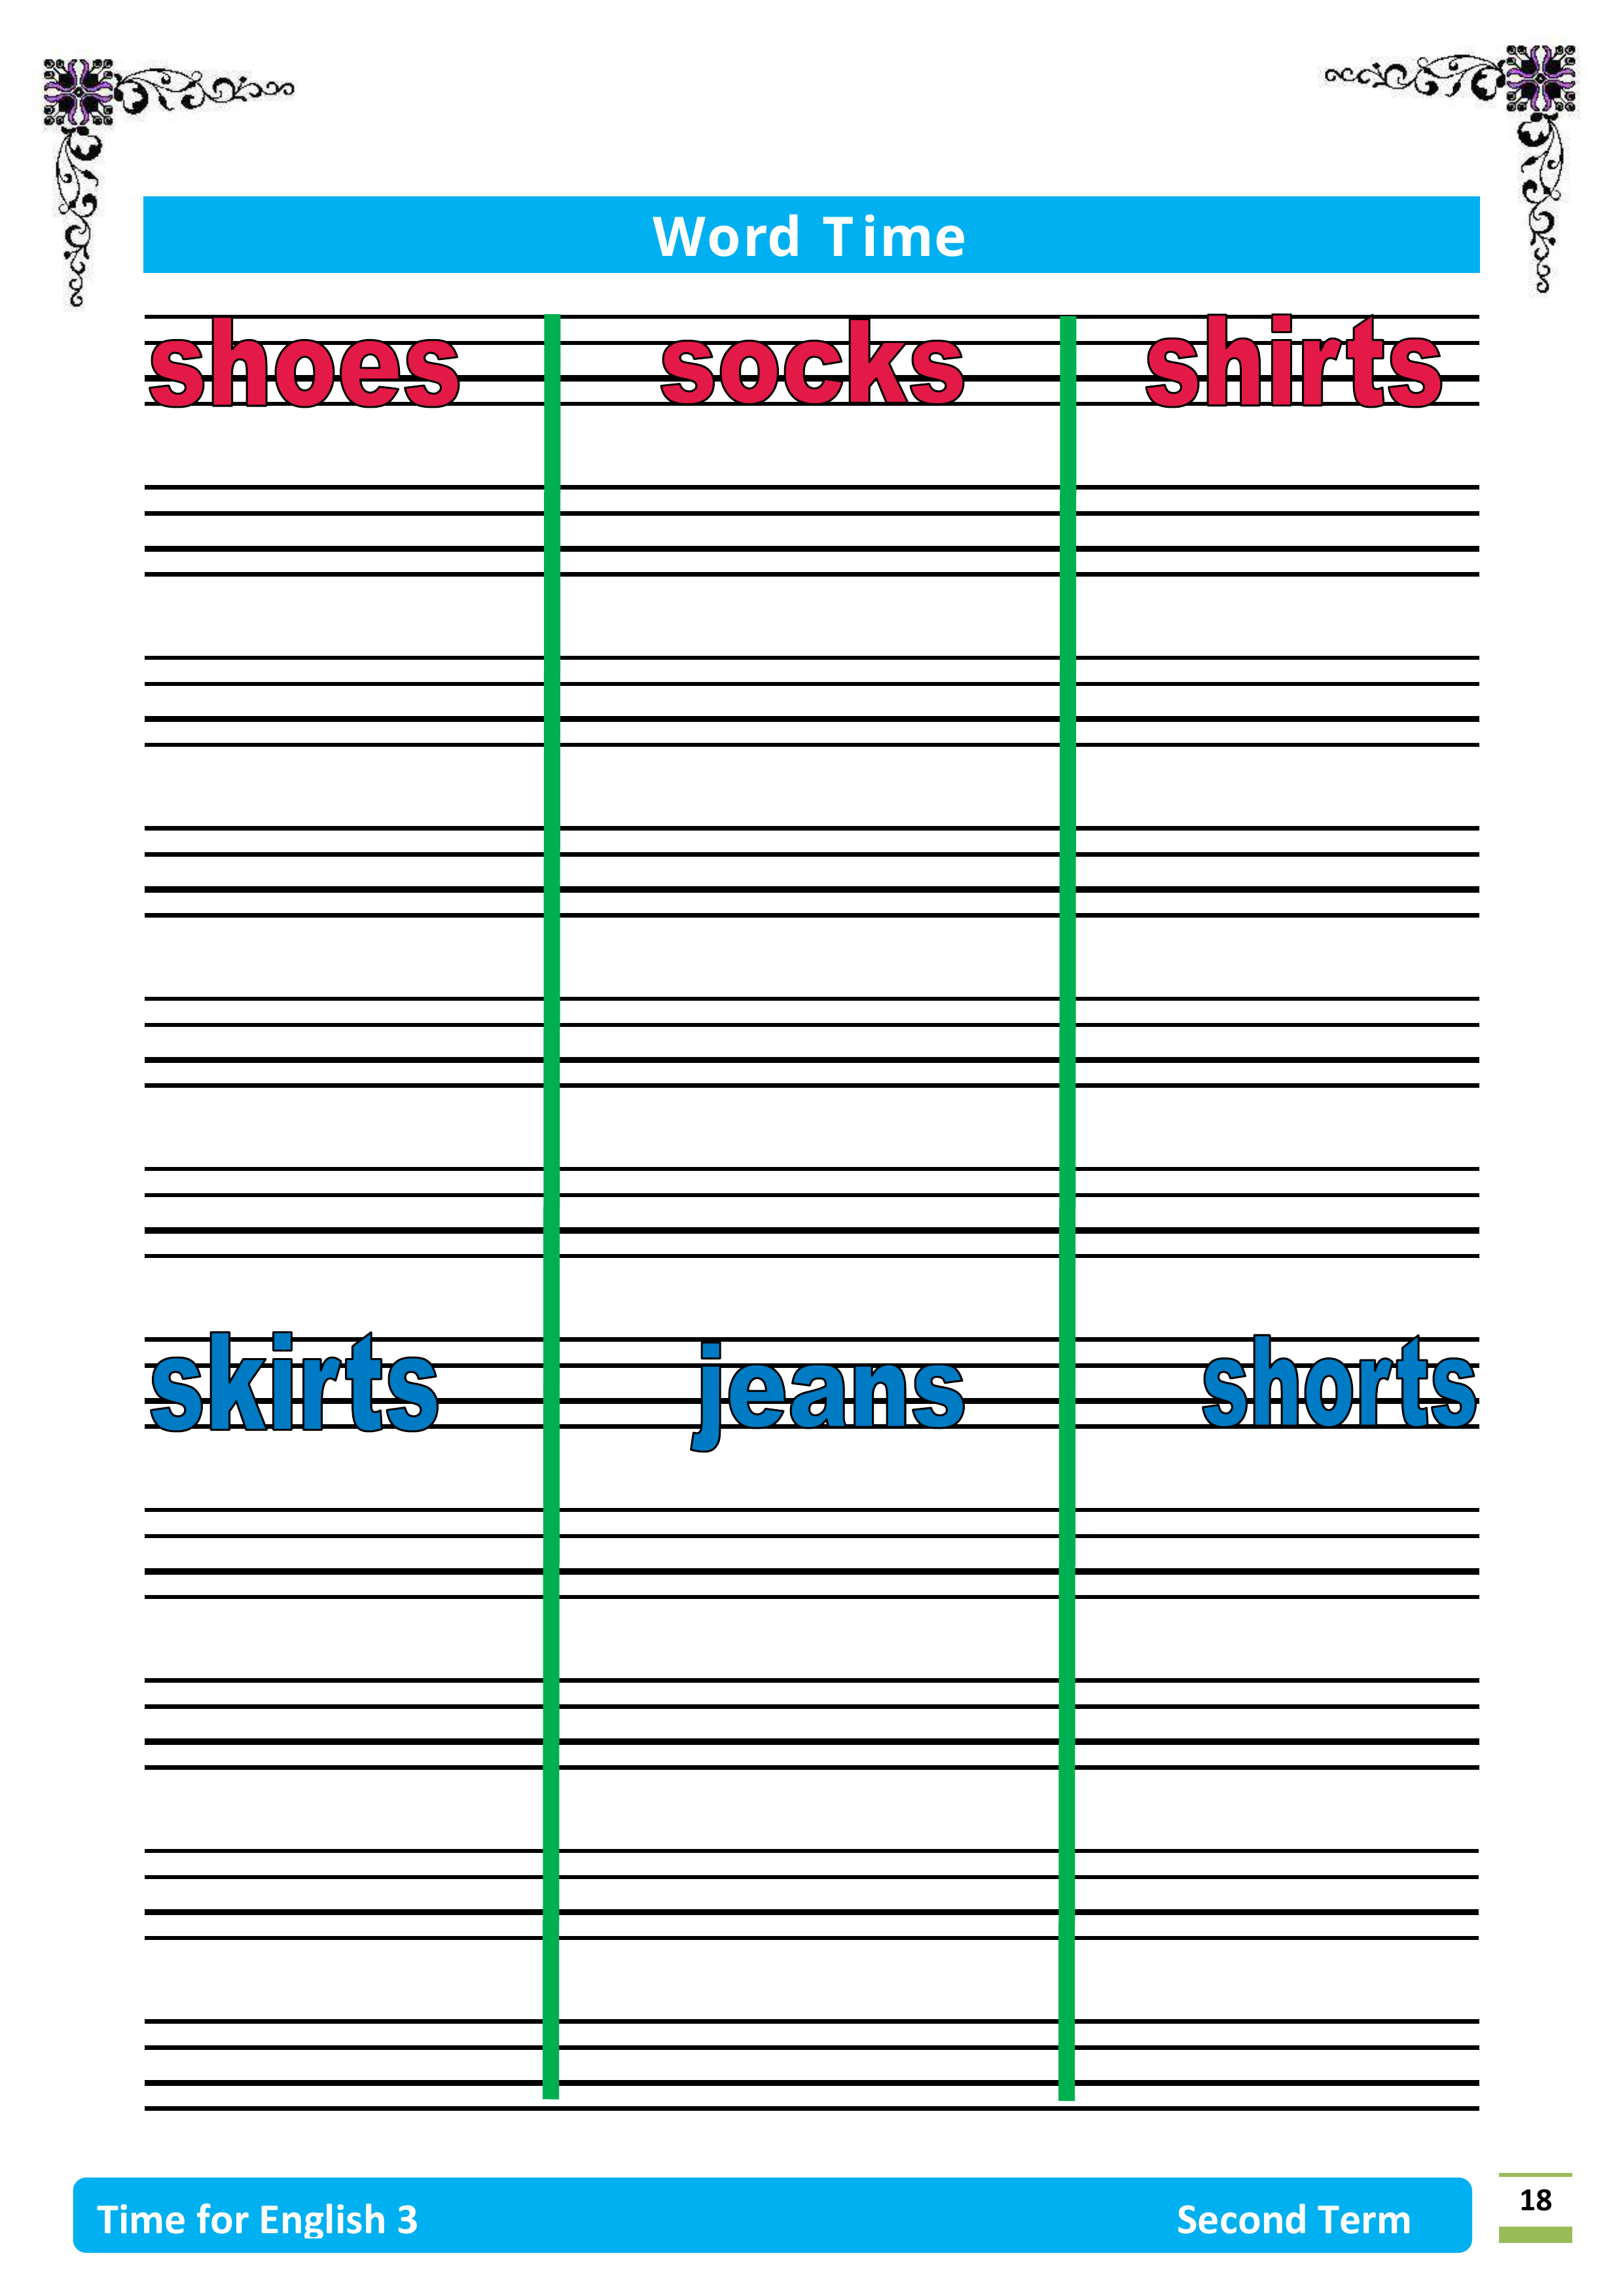 Word Time
shoes socks shirts
skirts jeans shorts
Time for English 3 Second Term 18